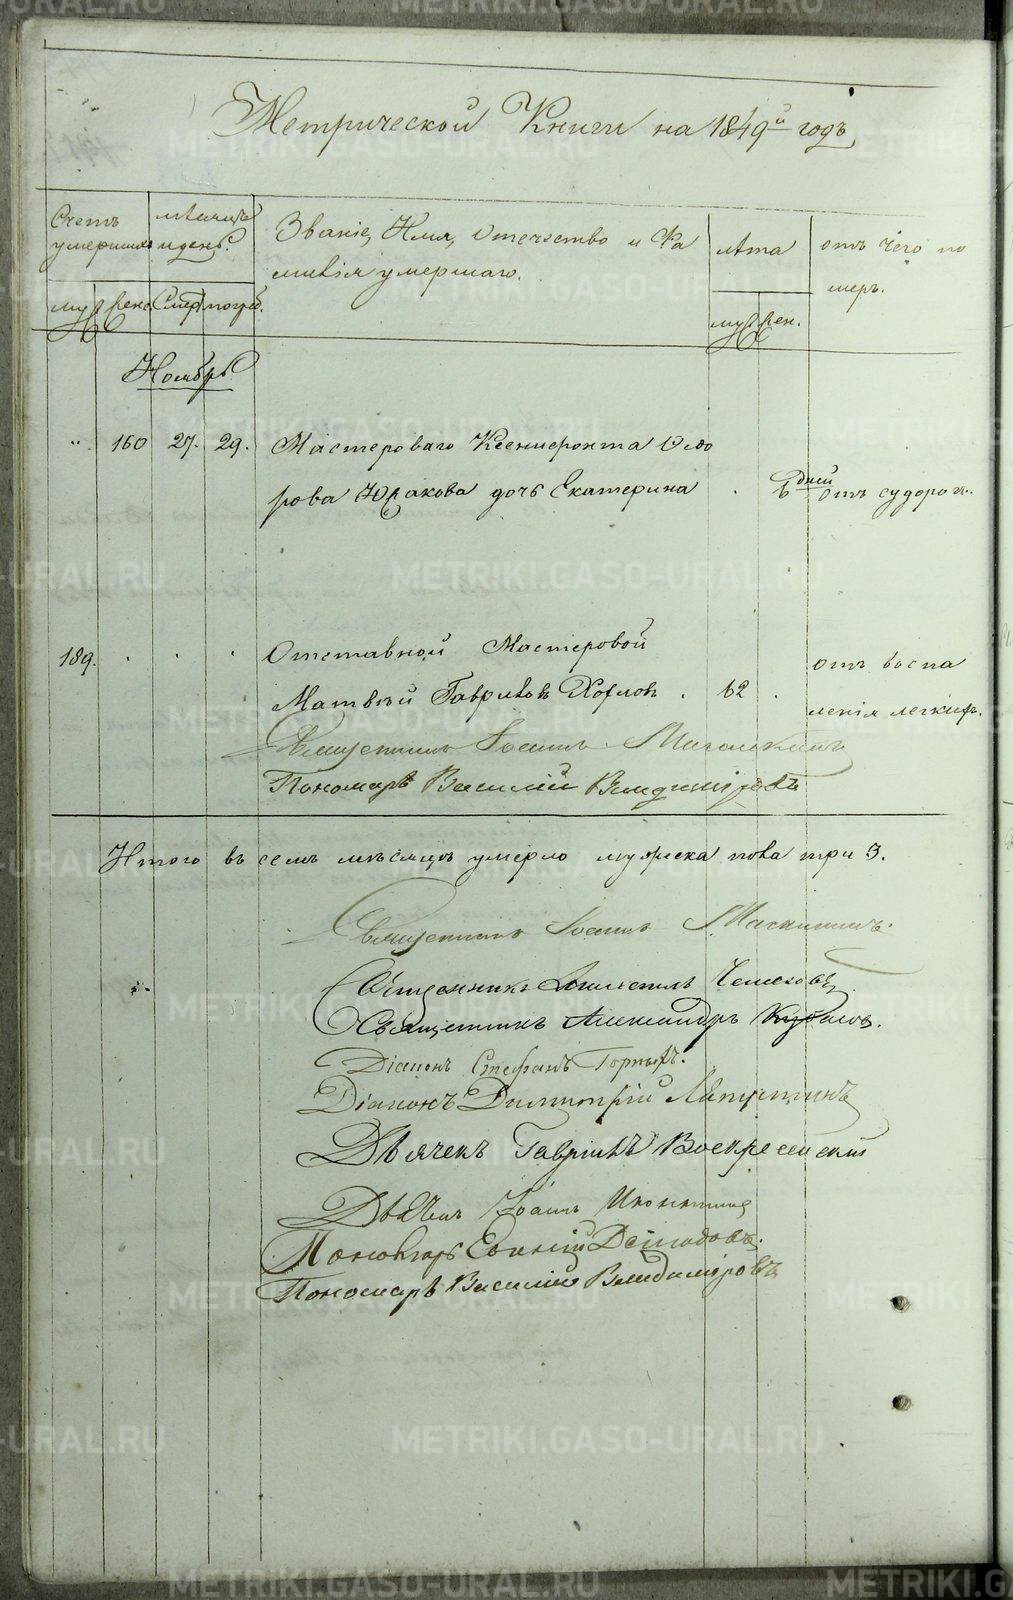 Метрической Книги на 1849й годъ
Счетъ умершихъ
мѣсяцъ и день.
Званіе, Имя, Отечество и Фа
милія умершаго.
лѣта
отъ чего по
меръ.
муж жен. Смер погреб.
муж жен.
Ноябрь
" 160 27. 29. Мастероваго Ксенифонта Ѳедо
рова Юрлакова дочь Екатерина . 6 дней отъ судорог..
189. . . . Отставной Мастеровой
Матвѣй Гавриловъ Хохловъ . 62 . отъ воспа
ленія легкихъ.
Священникъ Іоаннъ
Пономарь Василій Владиміровъ
Итого въ семъ мѣсяцѣ умерло мужеска пола три 3.
Священникъ Іоаннъ
Священникъ
Священникъ Александръ
Діаконъ Стефанъ Горныхъ.
Діаконъ Димитрій Лапустинъ
Дьячекъ Гавріилъ Воскресенскій
Дьячекъ Іоаннъ
Пономарь Евгеній
Пономарь Василій Владиміровъ
METRIKI.GASO-URAL.RU